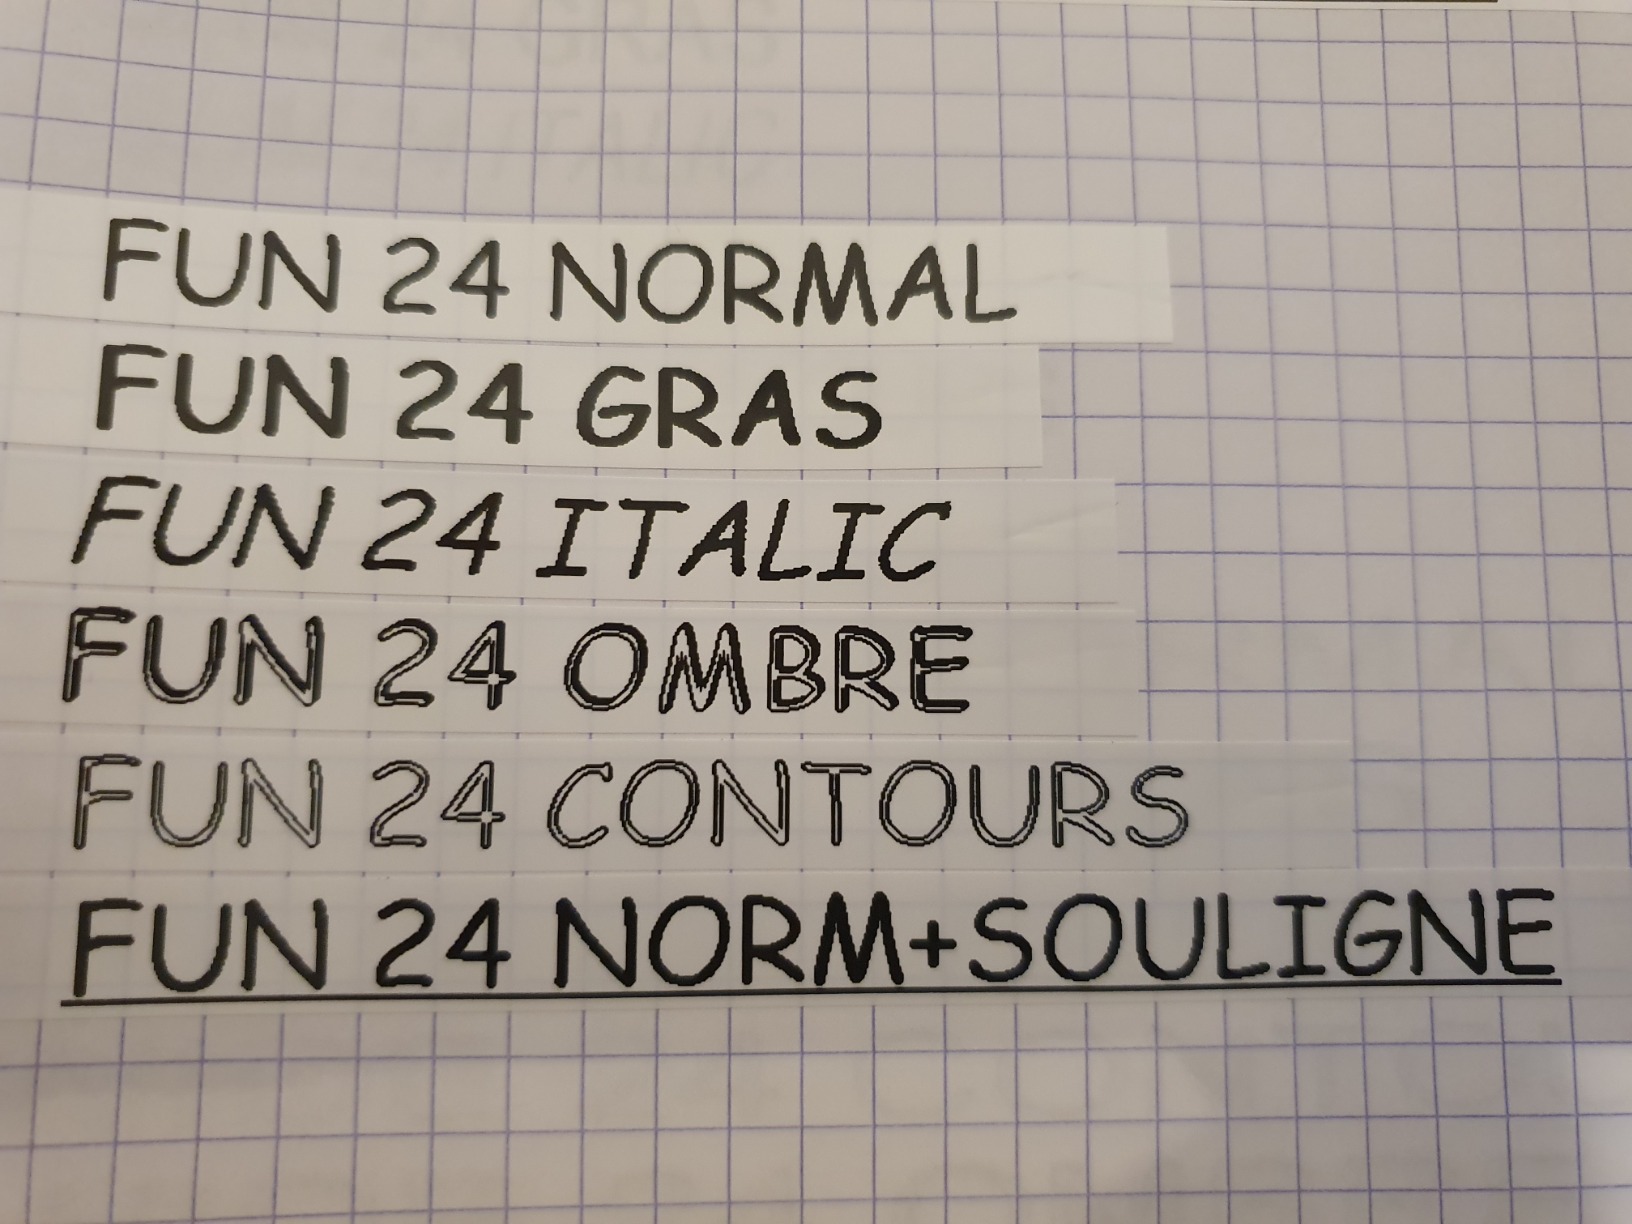 FUN 24 NORMAL
FUN 24 GRAS
FUN 24 ITALIC
FUN 24 OMBRE
FUN 24 CONTOURS
FUN 24 NORM+SOULIGNE